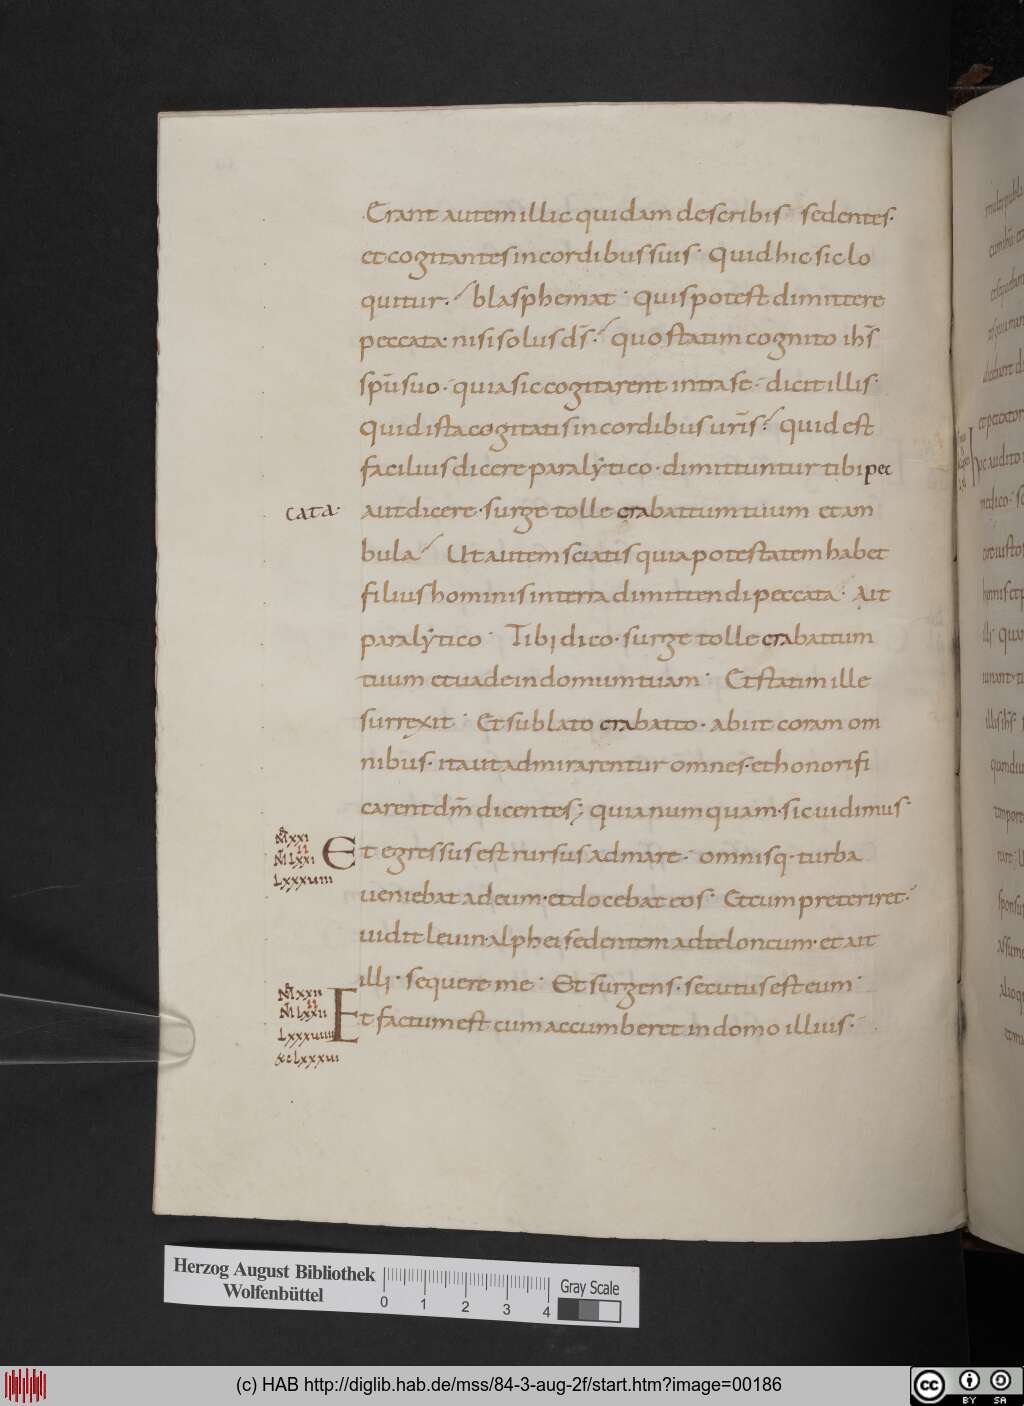 Erant autem illic quidam describis sedentes·
et cogitantes in cordibus suis· Quid hic sic lo
quitur·/ blasphemat· quis potest dimittere
peccata· nisi solus ds̄·/ quo statim cognito ihs̄
spū suo· quia sic cogitarent intra se· dicit illis·
Quid ista cogitatis in cordibus urīs·/ quid est
facilius dicere paralẏtico· dimittuntur tibi pec
cata· aut dicere· surge tolle crabattum tuum et am
bula/ Ut autem sciatis quia potestatem habet
filius hominis in terra dimittendi peccata· Ait
paralẏtico· Tibi dico· surge tolle crabattum
tuum et uade in domum tuam· Et statim ille
surrexit· Et sublato crabatto· abiit coram om
nibus· ita ut admirarentur omnes· et honorifi
carent dm̄ dicentes; quia numquam· sic uidimus·
M̄ XXI
II
M̄ LXXI
LXXXVIII
Et egressus est rursus ad mare· omnisq· turba
ueniebat ad eum· et docebat eos· Et cum preteriret·
uidit leuin· alphei sedentem ad teloneum· et ait
illi· sequere me· Et surgens· secutus est eum·
M̄ XXII
II
M̄ LXXII
LXXXVIIII
Et factum est cum accumberet in domo illius·
Herzog August Bibliothek
Wolfenbüttel
0 1 2 3 4
Gray Scale
(c) HAB http://diglib.hab.de/mss/84-3-aug-2f/start.htm?image=00186
cc BY SA